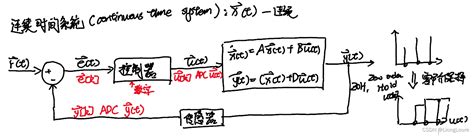 连续时间系统(continuous time system): x⃗(t) 一连续
r⃗(t)
e⃗(t)
e⃗[k]
控制器
数字
u⃗(t)
u⃗[k]
x⃗̇(t) = Ax⃗(t) + Bu⃗(t)
y⃗(t) = Cx⃗(t) + Du⃗(t)
y⃗(t)
Zero order
Hold
ZOH,
零阶保持器
y⃗[k] ADC y⃗(t)
传感器
CSDN @LiongLoure